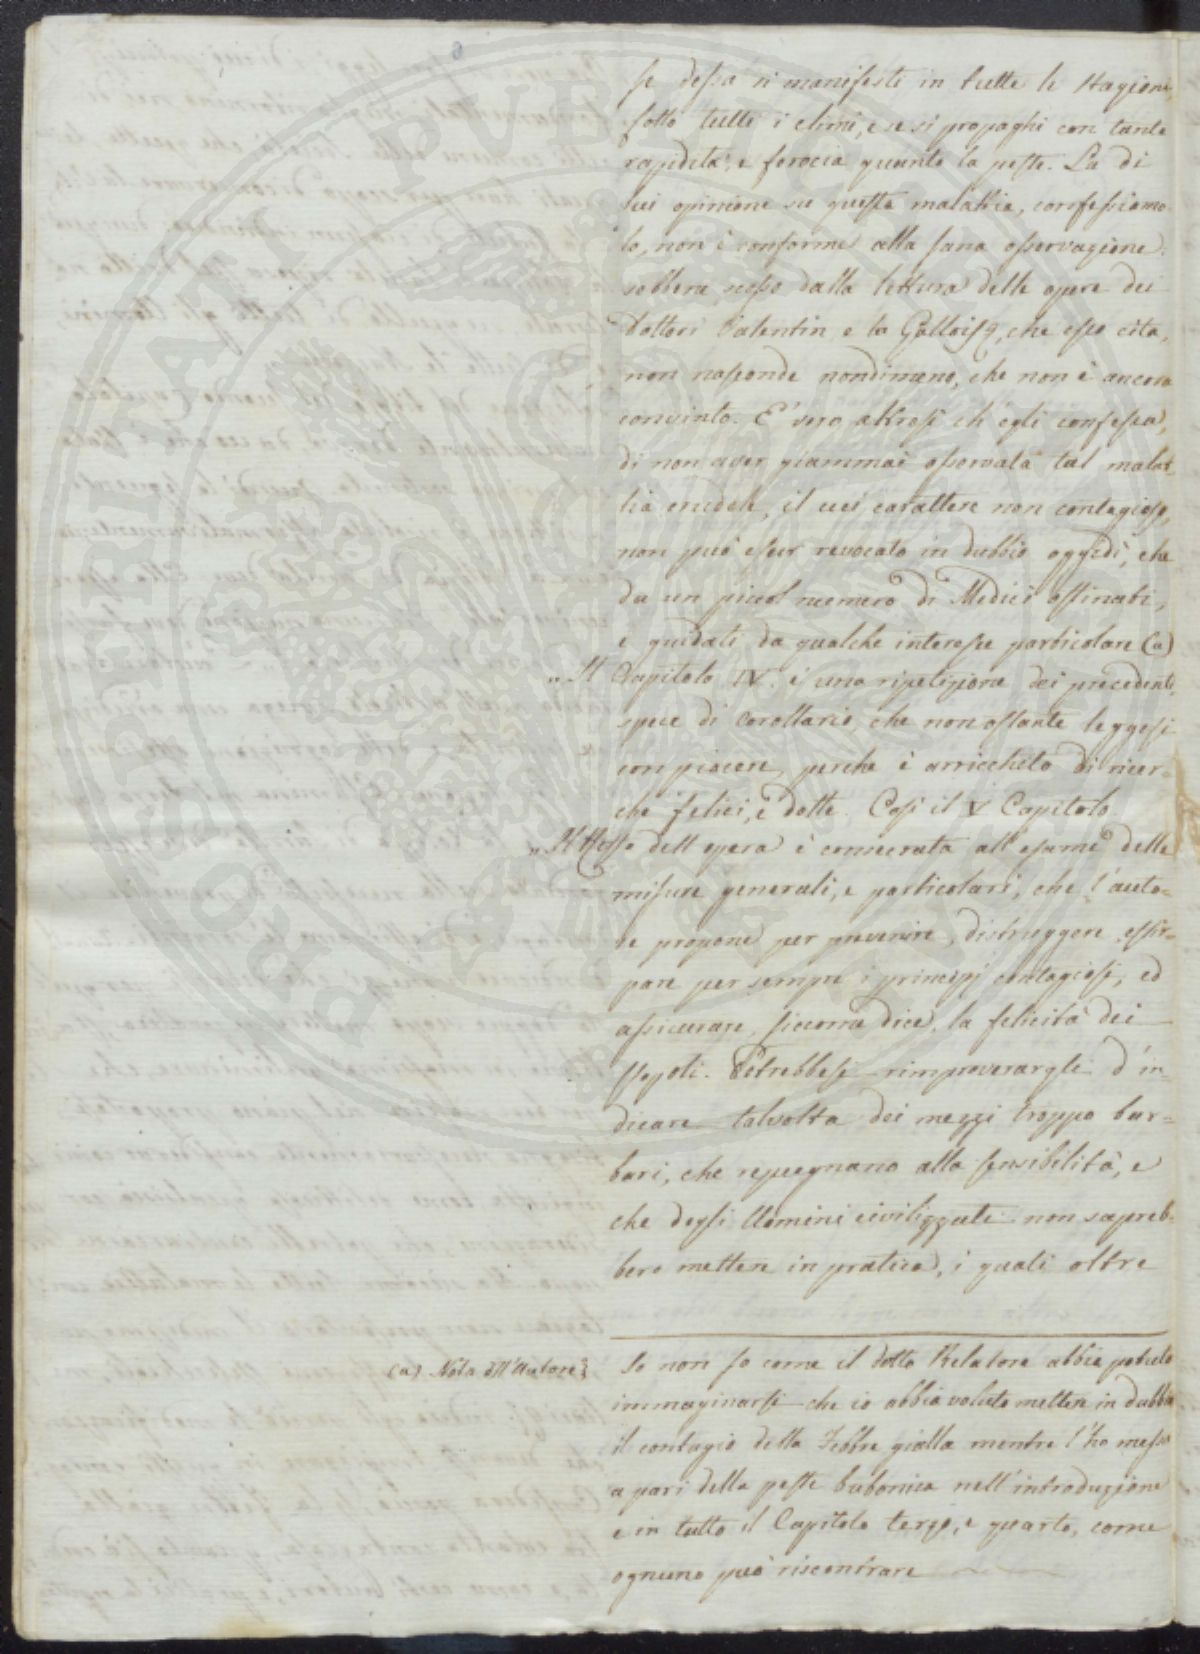 se dessa si manifesti in tutte le stagioni,
sotto tutti i climi, e se si propaghi con tanta
rapidità, e ferocia quanto la peste. La di
lui opinione su questa malattia, confessiamo-
lo, non è conforme alla sana osservazione:
sebbene scosso dalla lettura delle opere dei
Dottori Valentin e la, che esso cita,
non nasconde nondimeno, che non è ancora
convinto. E' vero altresì ch'egli confessa,
di non aver giammai osservata tal malat-
tia crudele, il cui carattere non contagioso,
non può esser revocato in dubbio oggidì, che
da un piccol numero di Medici ostinati,
e guidati da qualche interesse particolare (a)
„ Il Capitolo IV. è una ripetizione dei precedenti,
specie di corollario, che non ostante leggesi
con piacere, perchè è arricchito di ricer-
che felici, e dotte. Così il V Capitolo.
„ Il resto dell'opera è consecrata all'esame delle
misure generali, e particolari, che l'auto-
re propone per prevenire, distruggere, estir-
pare per sempre i principj contagiosi, ed
assicurare, siccome dice, la felicità dei
Popoli. Potrebbesi rimproverargli d'in-
dicare talvolta dei mezzi troppo bar-
bari, che repugnano alla sensibilità, e
che degli Uomini civilizzati non sapreb-
bero mettere in pratica, i quali oltre
(a) Nota dell'Autore
Io non so come il dotto Relatore abbia potuto
immaginarsi che io abbia voluto mettere in dubbio
il contagio della Febbre gialla mentre l'ho messa
a pari della peste bubonica nell'introduzione
e in tutto il Capitolo terzo, e quarto, come
ognuno può riscontrare
POSTRI VATI PUBLICO